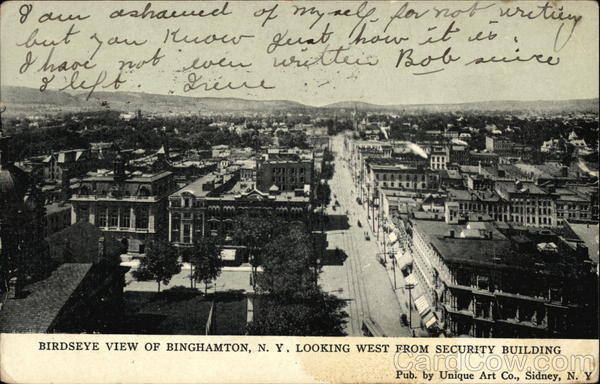 I am ashamed of myself for not writing
but you know just how it is.
I have not even written Bob since
I left. Irene
BIRDSEYE VIEW OF BINGHAMTON, N. Y. LOOKING WEST FROM SECURITY BUILDING
CardCow.com
Pub. by Unique Art Co., Sidney, N. Y